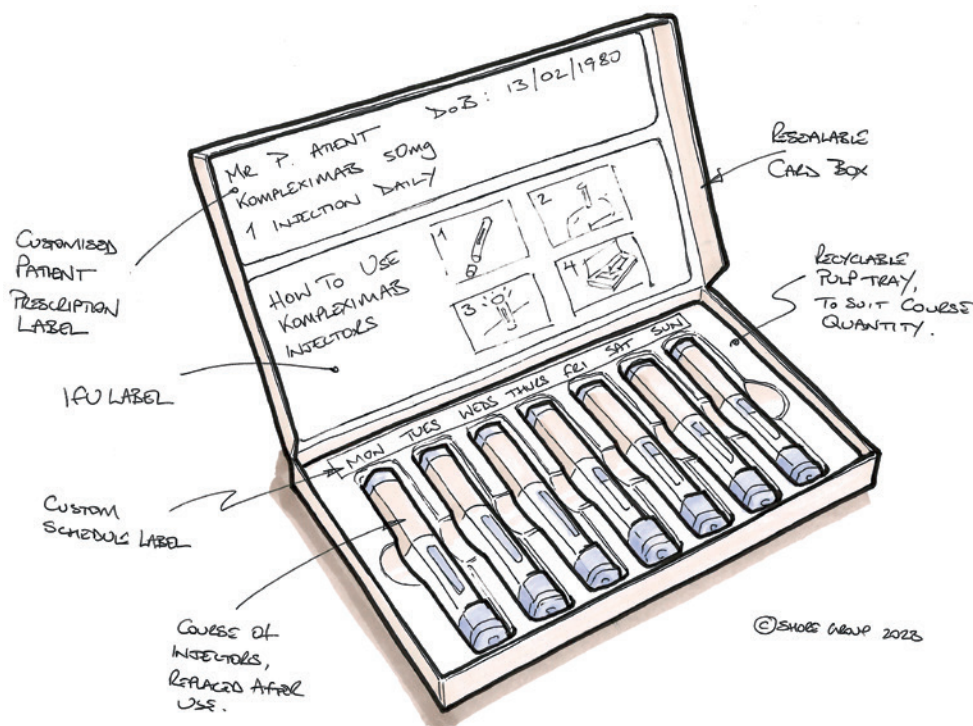 MR P. ATIENT DoB: 13/02/1980
KOMPLEXIMAB 50mg
1 INJECTION DAILY
HOW TO USE
KOMPLEXIMAB
INJECTORS
1
2
3
4
MON TUES WEDS THURS FRI SAT SUN
CUSTOMISED
PATIENT
PRESCRIPTION
LABEL
IFU LABEL
CUSTOM
SCHEDULE LABEL
COURSE OF
INJECTORS,
REPLACED AFTER
USE.
RESEALABLE
CARD BOX
RECYCLABLE
PULP TRAY,
TO SUIT COURSE
QUANTITY.
© SHORE GROUP 2023